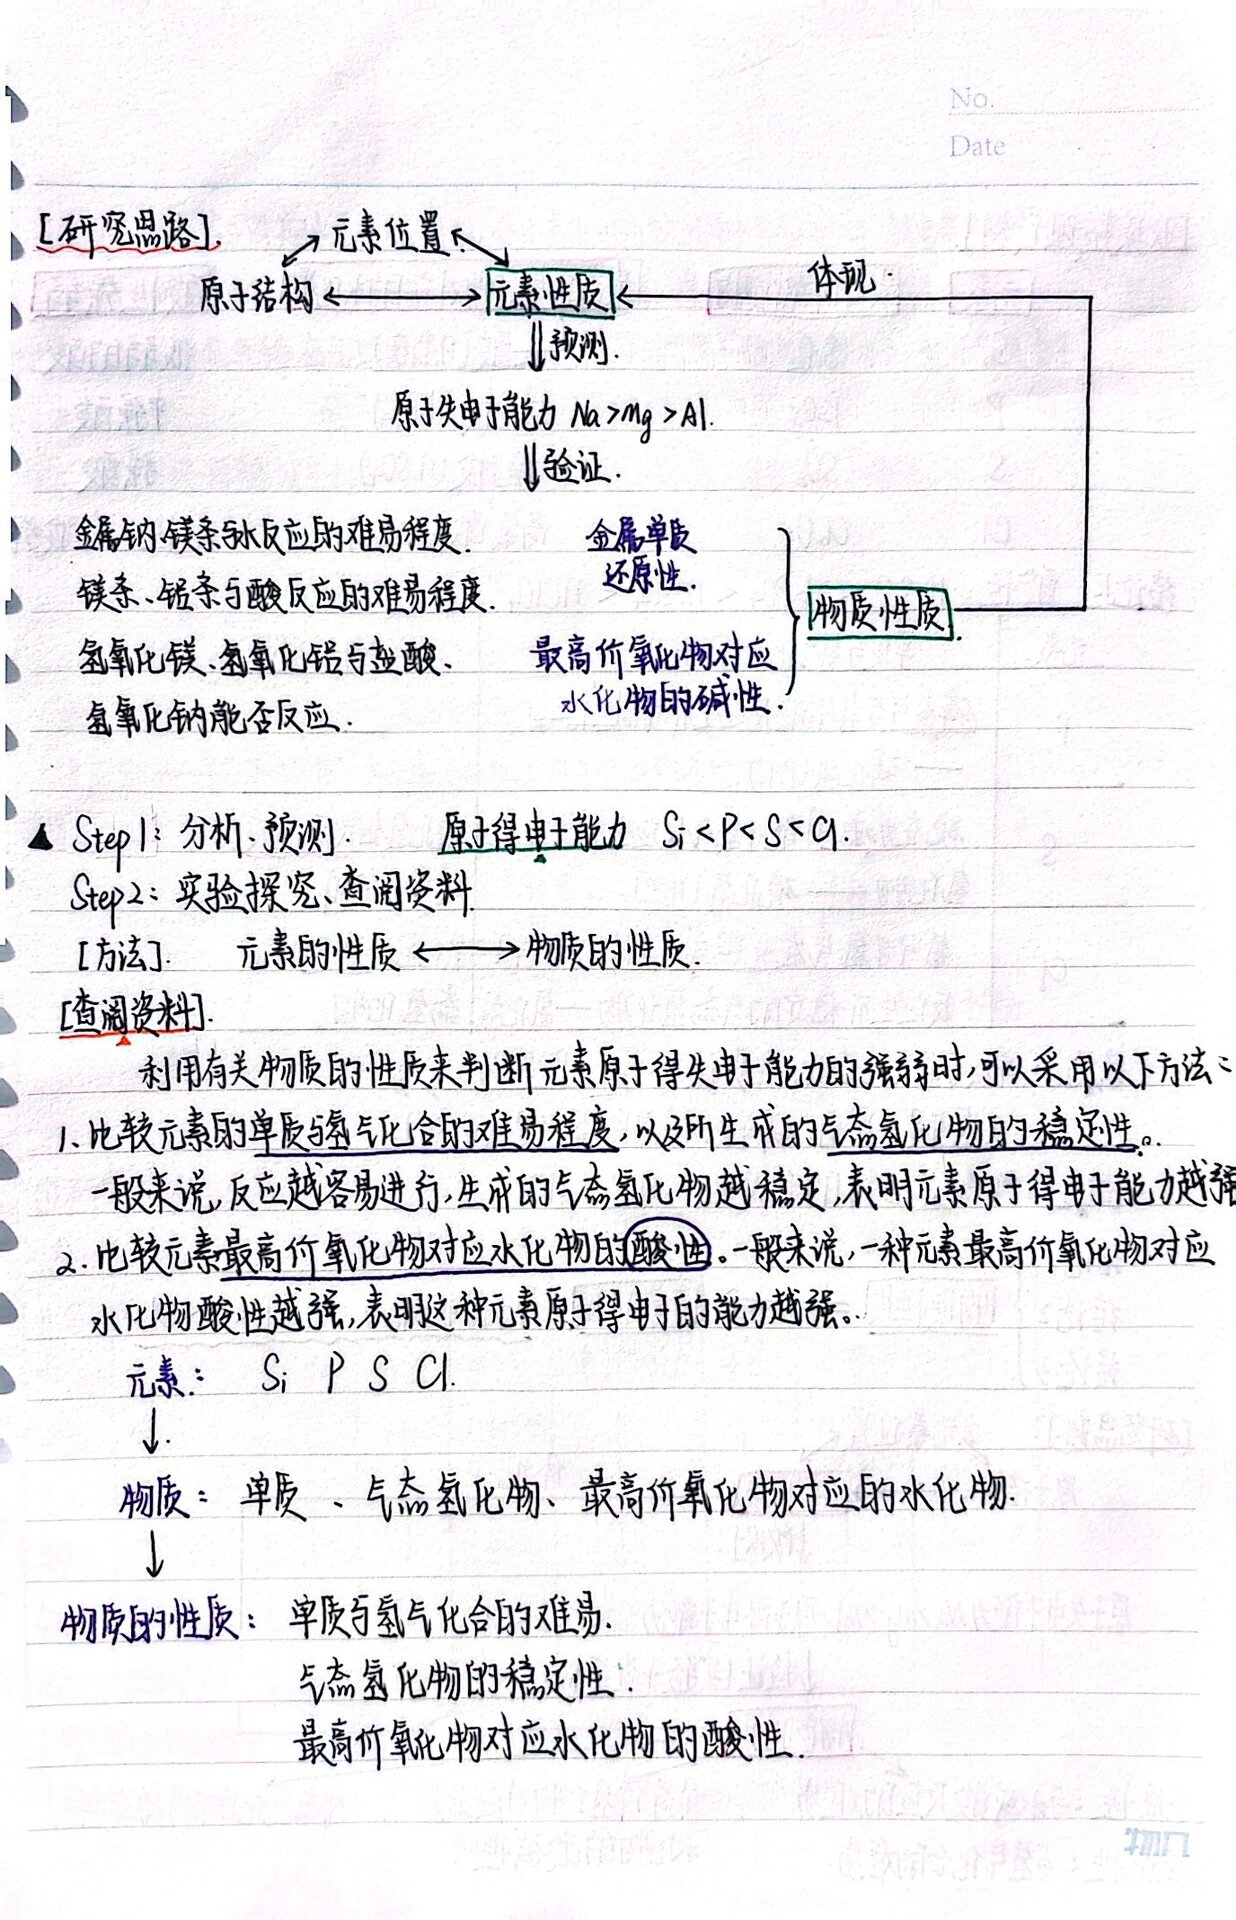 No.
Date
[研究思路].
元素位置
原子结构 元素性质 体现.
预测.
原子失电子能力 Na>Mg>Al.
验证.
金属钠、镁条与水反应的难易程度. 金属单质
还原性.
镁条、铝条与酸反应的难易程度.
物质性质.
氢氧化镁、氢氧化铝与盐酸、 最高价氧化物对应
水化物的碱性.
氢氧化钠能否反应.
▲ Step1: 分析、预测. 原子得电子能力 Si<P<S<Cl.
Step2: 实验探究、查阅资料.
[方法]. 元素的性质 ⟷ 物质的性质.
[查阅资料].
利用有关物质的性质来判断元素原子得失电子能力的强弱时,可以采用以下方法:
1、比较元素的单质与氢气化合的难易程度,以及所生成的气态氢化物的稳定性。
一般来说,反应越容易进行,生成的气态氢化物越稳定,表明元素原子得电子能力越强
2、比较元素最高价氧化物对应水化物的酸性。一般来说,一种元素最高价氧化物对应
水化物酸性越强,表明这种元素原子得电子的能力越强。
元素: Si P S Cl.
↓.
物质: 单质、气态氢化物、最高价氧化物对应的水化物.
↓
物质的性质: 单质与氢气化合的难易.
气态氢化物的稳定性.
最高价氧化物对应水化物的酸性.